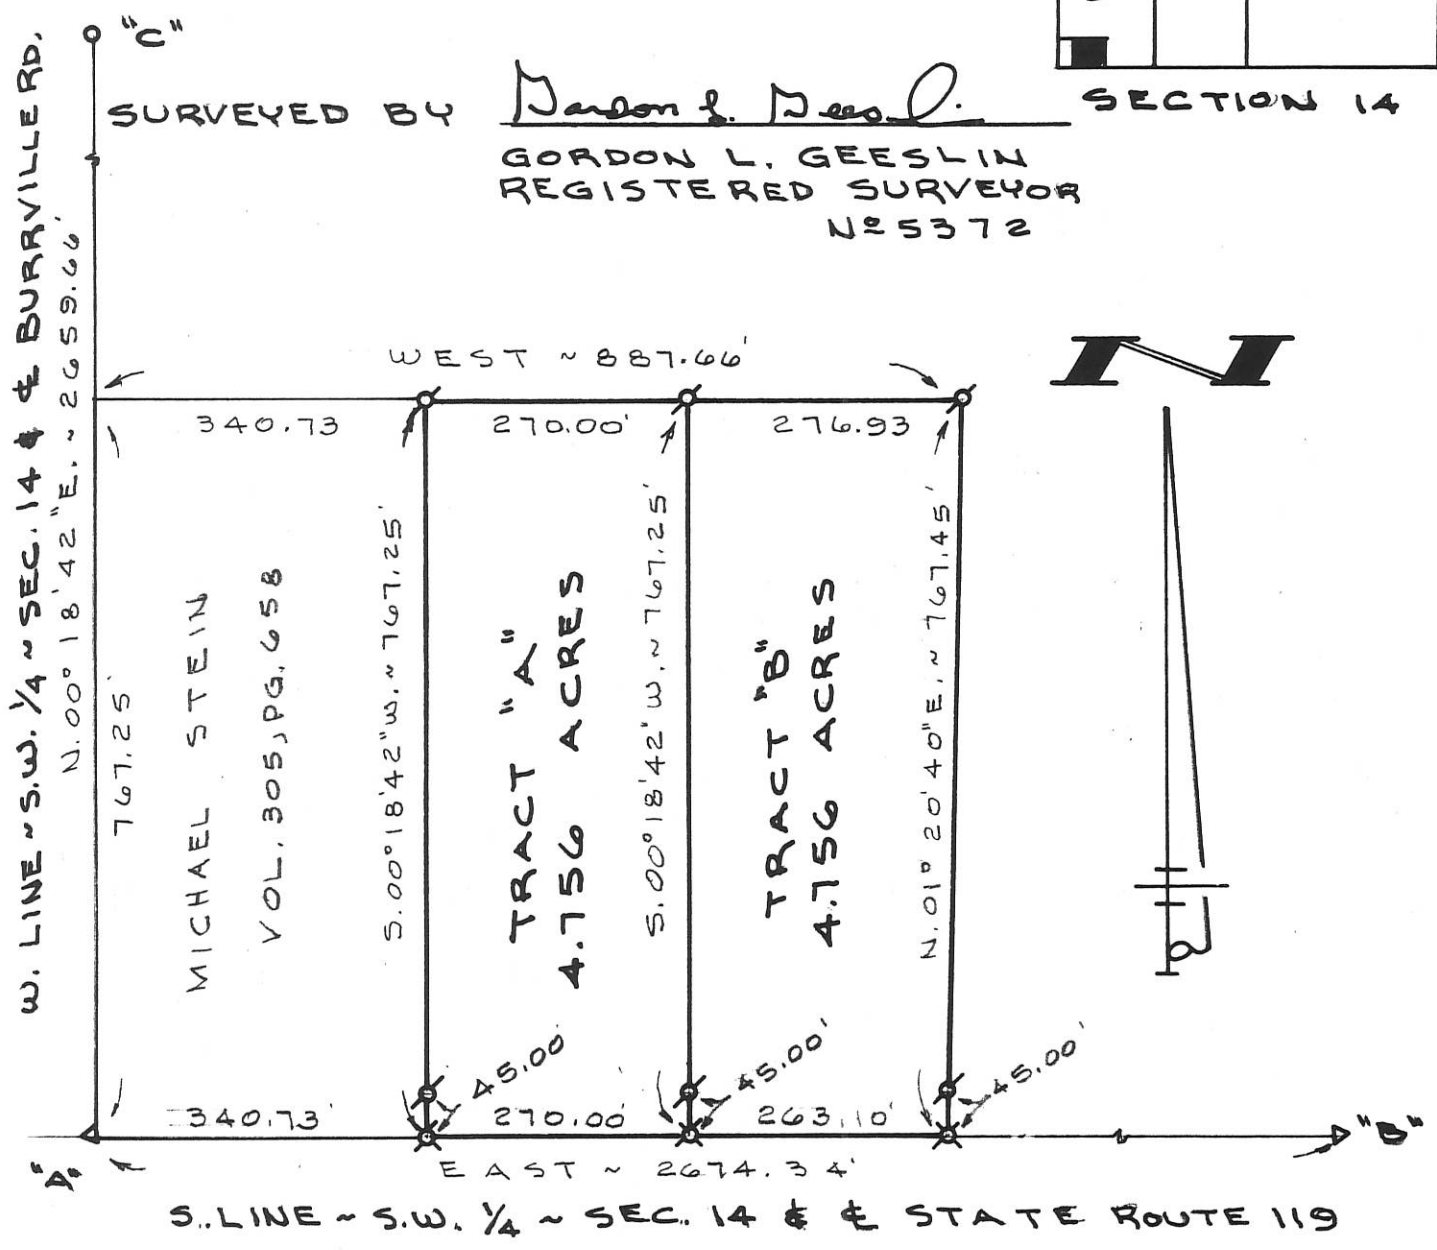 "C"
SURVEYED BY Gordon L. Geeslin
SECTION 14
GORDON L. GEESLIN
REGISTERED SURVEYOR
Nº 5372
W. LINE ~ S.W. 1/4 ~ SEC. 14 & ℄ BURRVILLE RD.
N. 00° 18' 42" E. ~ 2659.66'
767.25'
WEST ~ 887.66'
340.73
270.00'
276.93
N
MICHAEL STEIN
VOL. 305, PG. 658
S. 00° 18' 42" W. ~ 767.25'
TRACT "A"
4.756 ACRES
S. 00° 18' 42" W. ~ 767.25'
TRACT "B"
4.756 ACRES
N. 01° 20' 40" E. ~ 767.45'
45.00'
45.00'
45.00'
340.73'
270.00'
263.10'
"A"
EAST ~ 2674.34'
"B"
S. LINE ~ S.W. 1/4 ~ SEC. 14 & ℄ STATE ROUTE 119